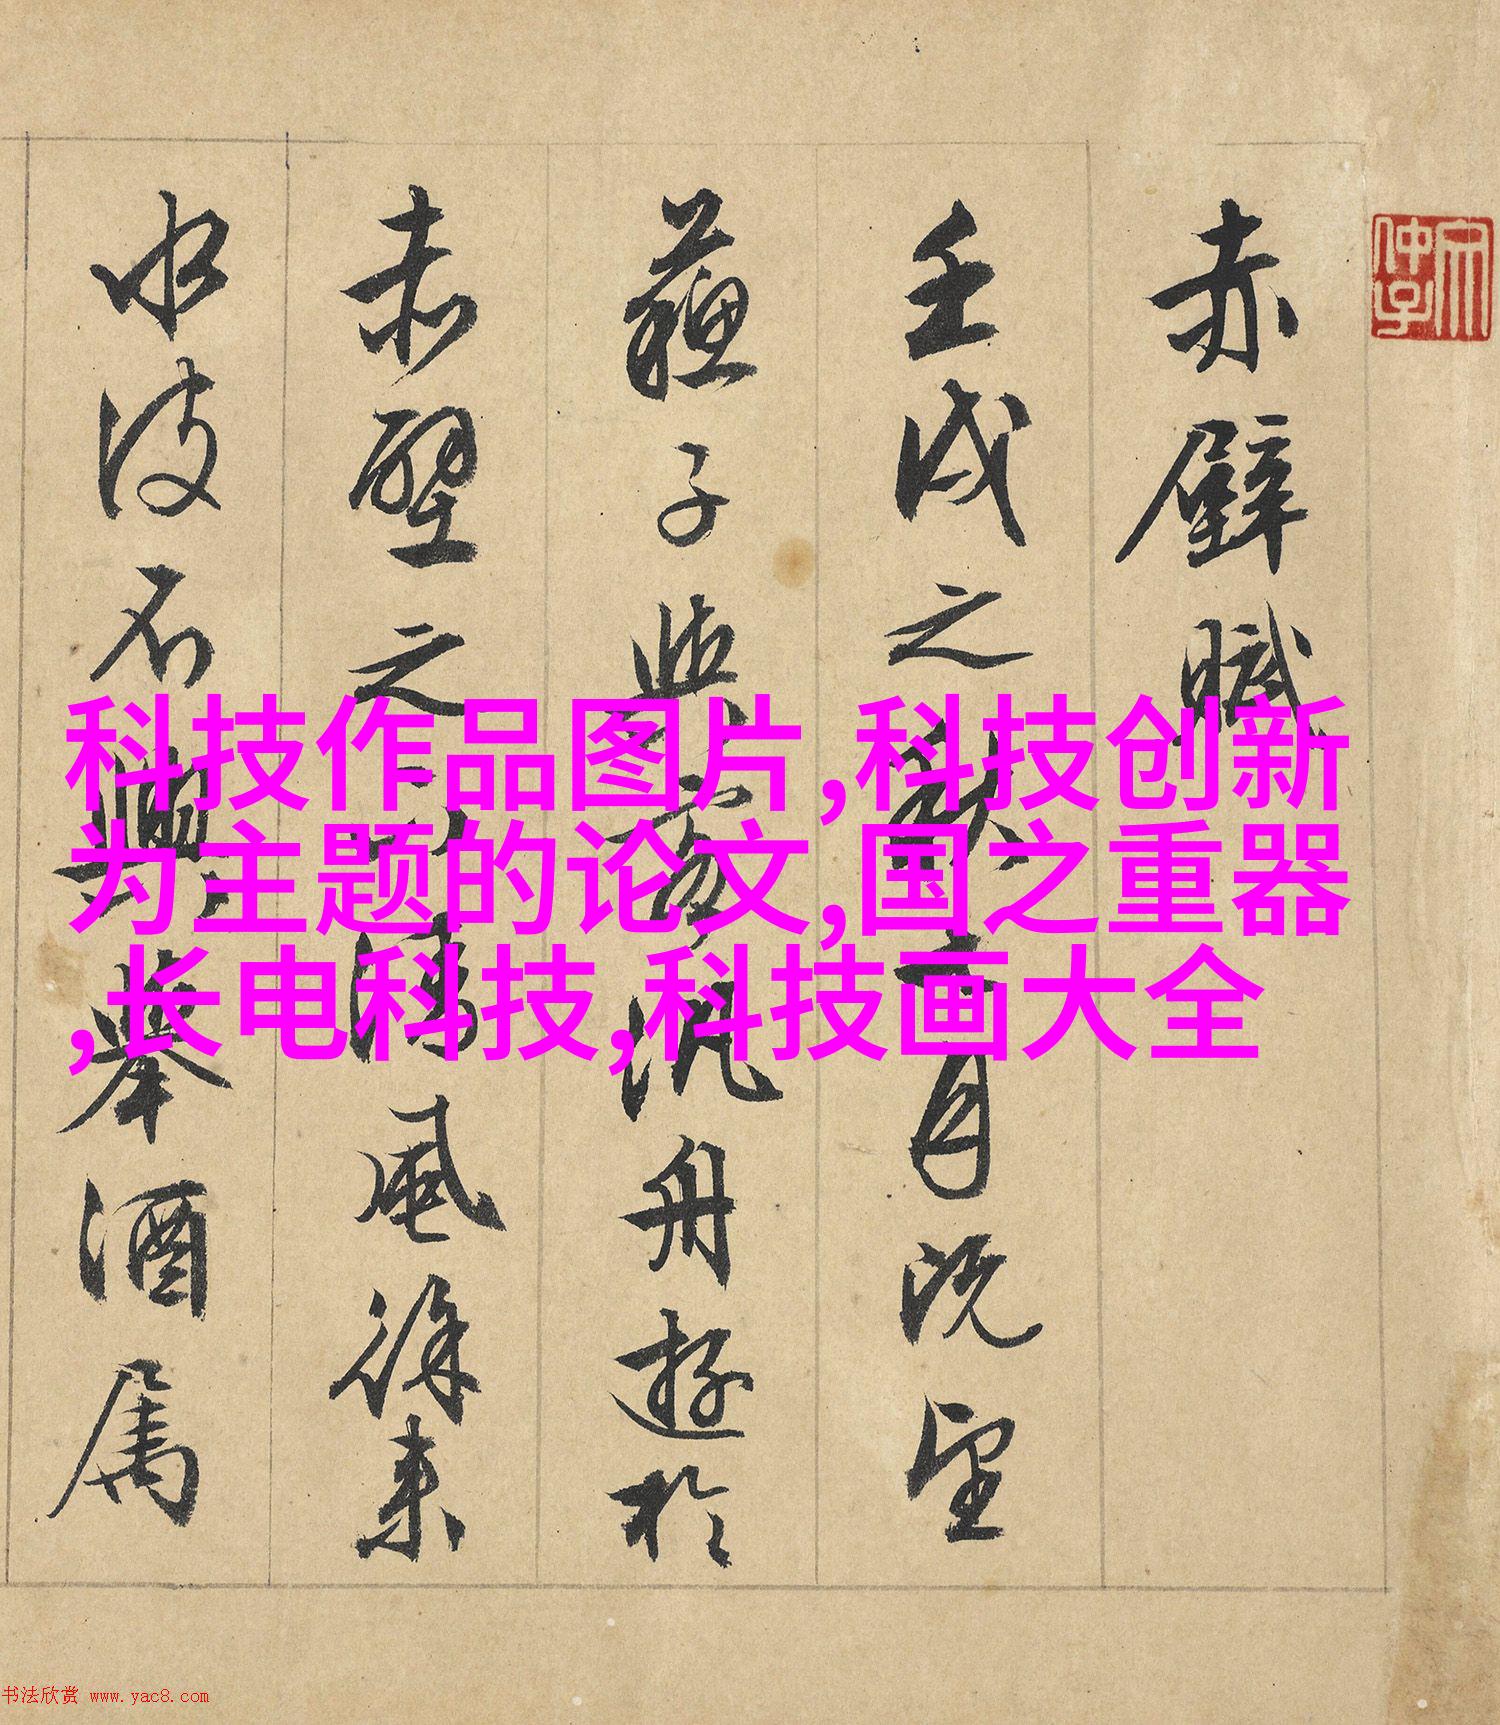 赤壁賦
壬戌之秋七月既望
蘇子與客汎舟遊於
赤壁之下清風徐來
水波不興舉酒屬
科技作品图片,科技创新
为主题的论文,国之重器
,长电科技,科技画大全
书法欣赏 www.yac8.com